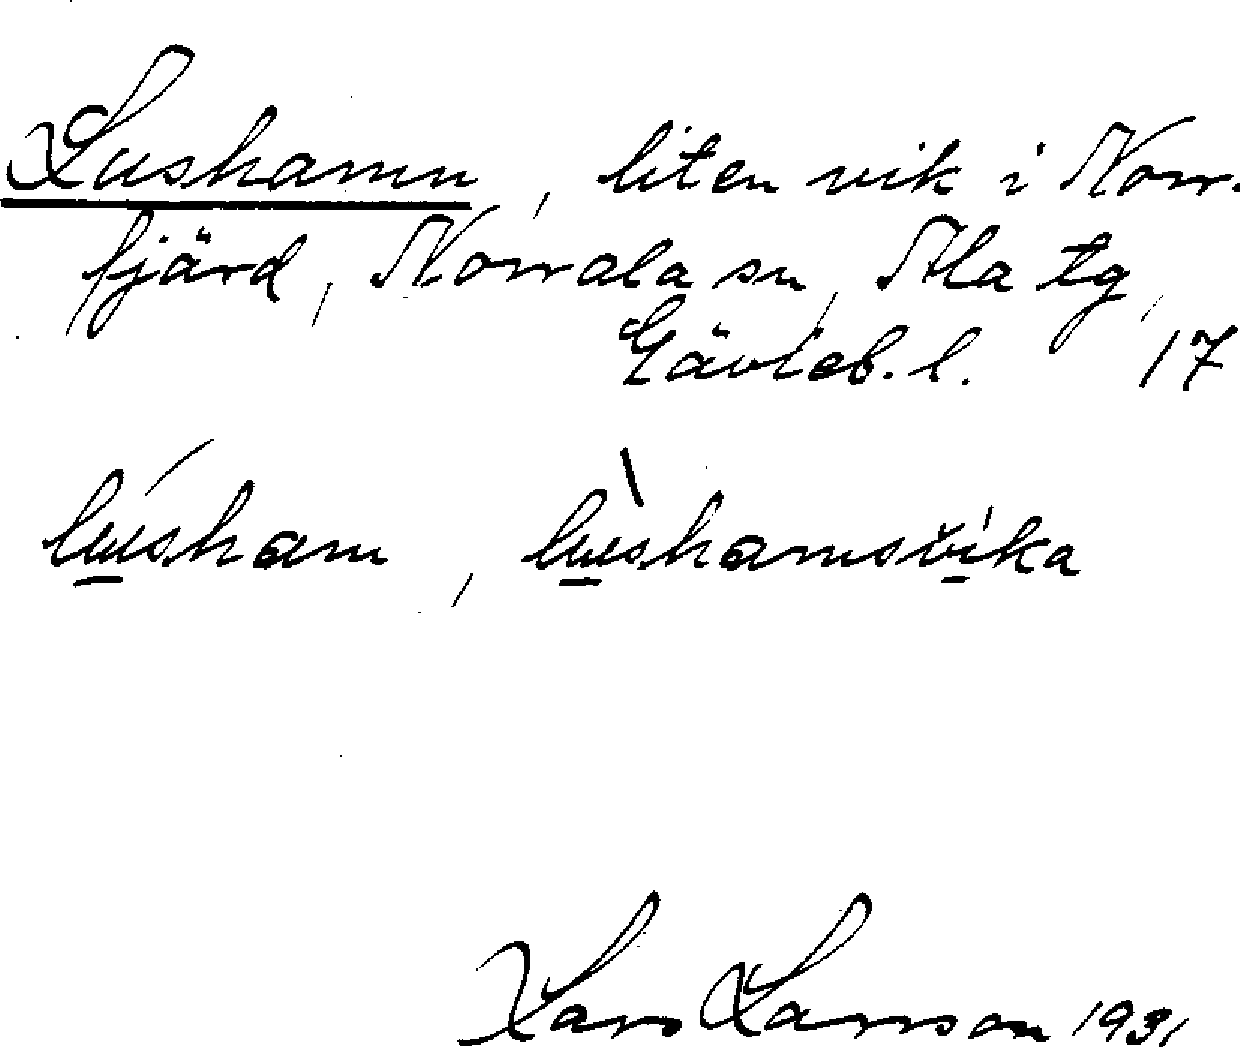 Lushamn, liten vik i Norr-
fjärd, Norrala sn, Ala tg,
Gävleb. l. 17
lusham, lushamsvika
Lars Larsson 1931